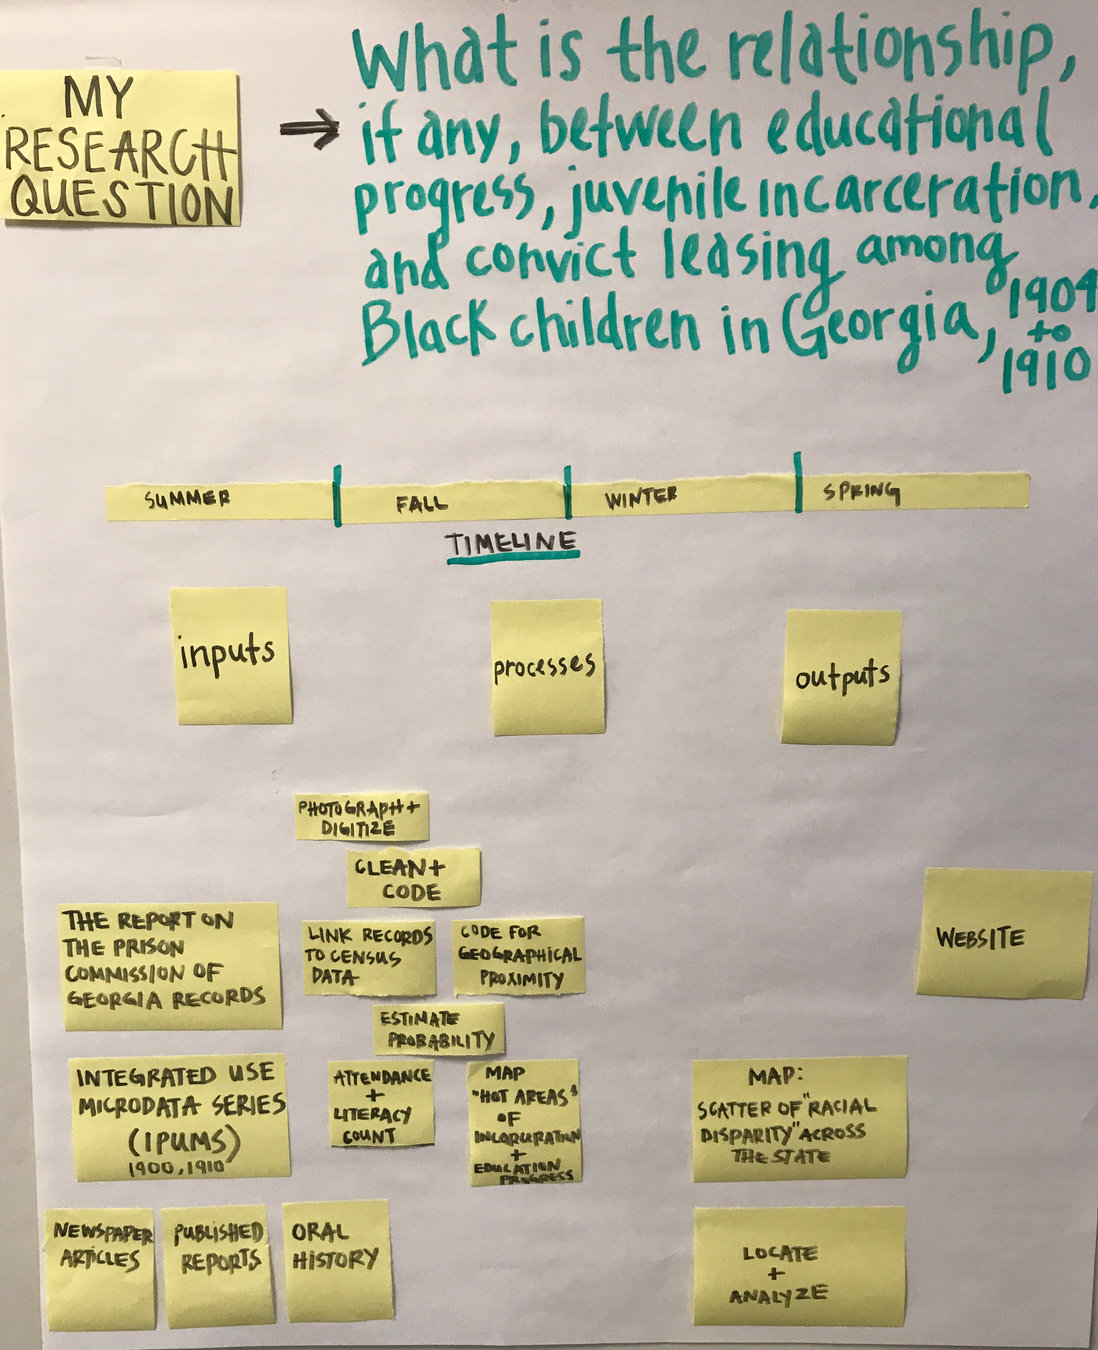 MY
RESEARCH
QUESTION
→ What is the relationship,
if any, between educational
progress, juvenile incarceration,
and convict leasing among
Black children in Georgia, 1904
to
1910
SUMMER
FALL
WINTER
SPRING
TIMELINE
inputs
processes
outputs
PHOTOGRAPH +
DIGITIZE
CLEAN +
CODE
THE REPORT ON
THE PRISON
COMMISSION OF
GEORGIA RECORDS
LINK RECORDS
TO CENSUS
DATA
CODE FOR
GEOGRAPHICAL
PROXIMITY
WEBSITE
ESTIMATE
PROBABILITY
INTEGRATED USE
MICRODATA SERIES
(IPUMS)
1900, 1910
ATTENDANCE
+
LITERACY
COUNT
MAP
"HOT AREAS"
OF
INCORCURATION
+
EDUCATION
PROGRESS
MAP:
SCATTER OF "RACIAL
DISPARITY" ACROSS
THE STATE
NEWSPAPER
ARTICLES
PUBLISHED
REPORTS
ORAL
HISTORY
LOCATE
+
ANALYZE